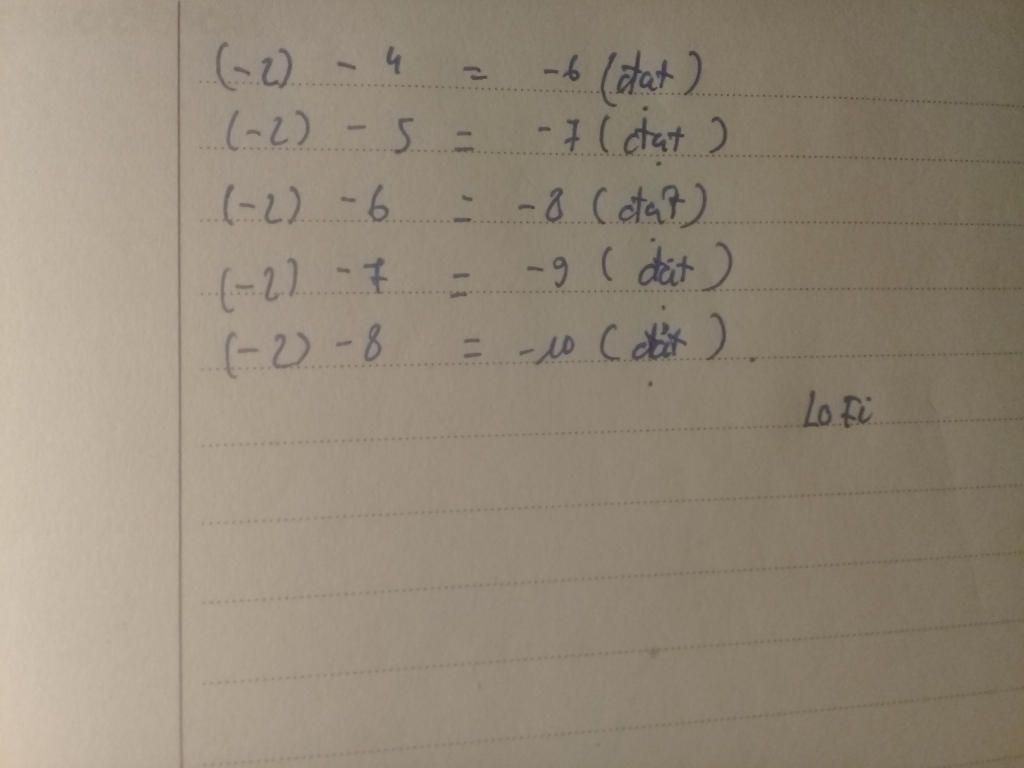 (-2) - 4 = -6 (đạt)
(-2) - 5 = -7 (đạt)
(-2) - 6 = -8 (đạt)
(-2) - 7 = -9 (đạt)
(-2) - 8 = -10 (đạt).
LoFi